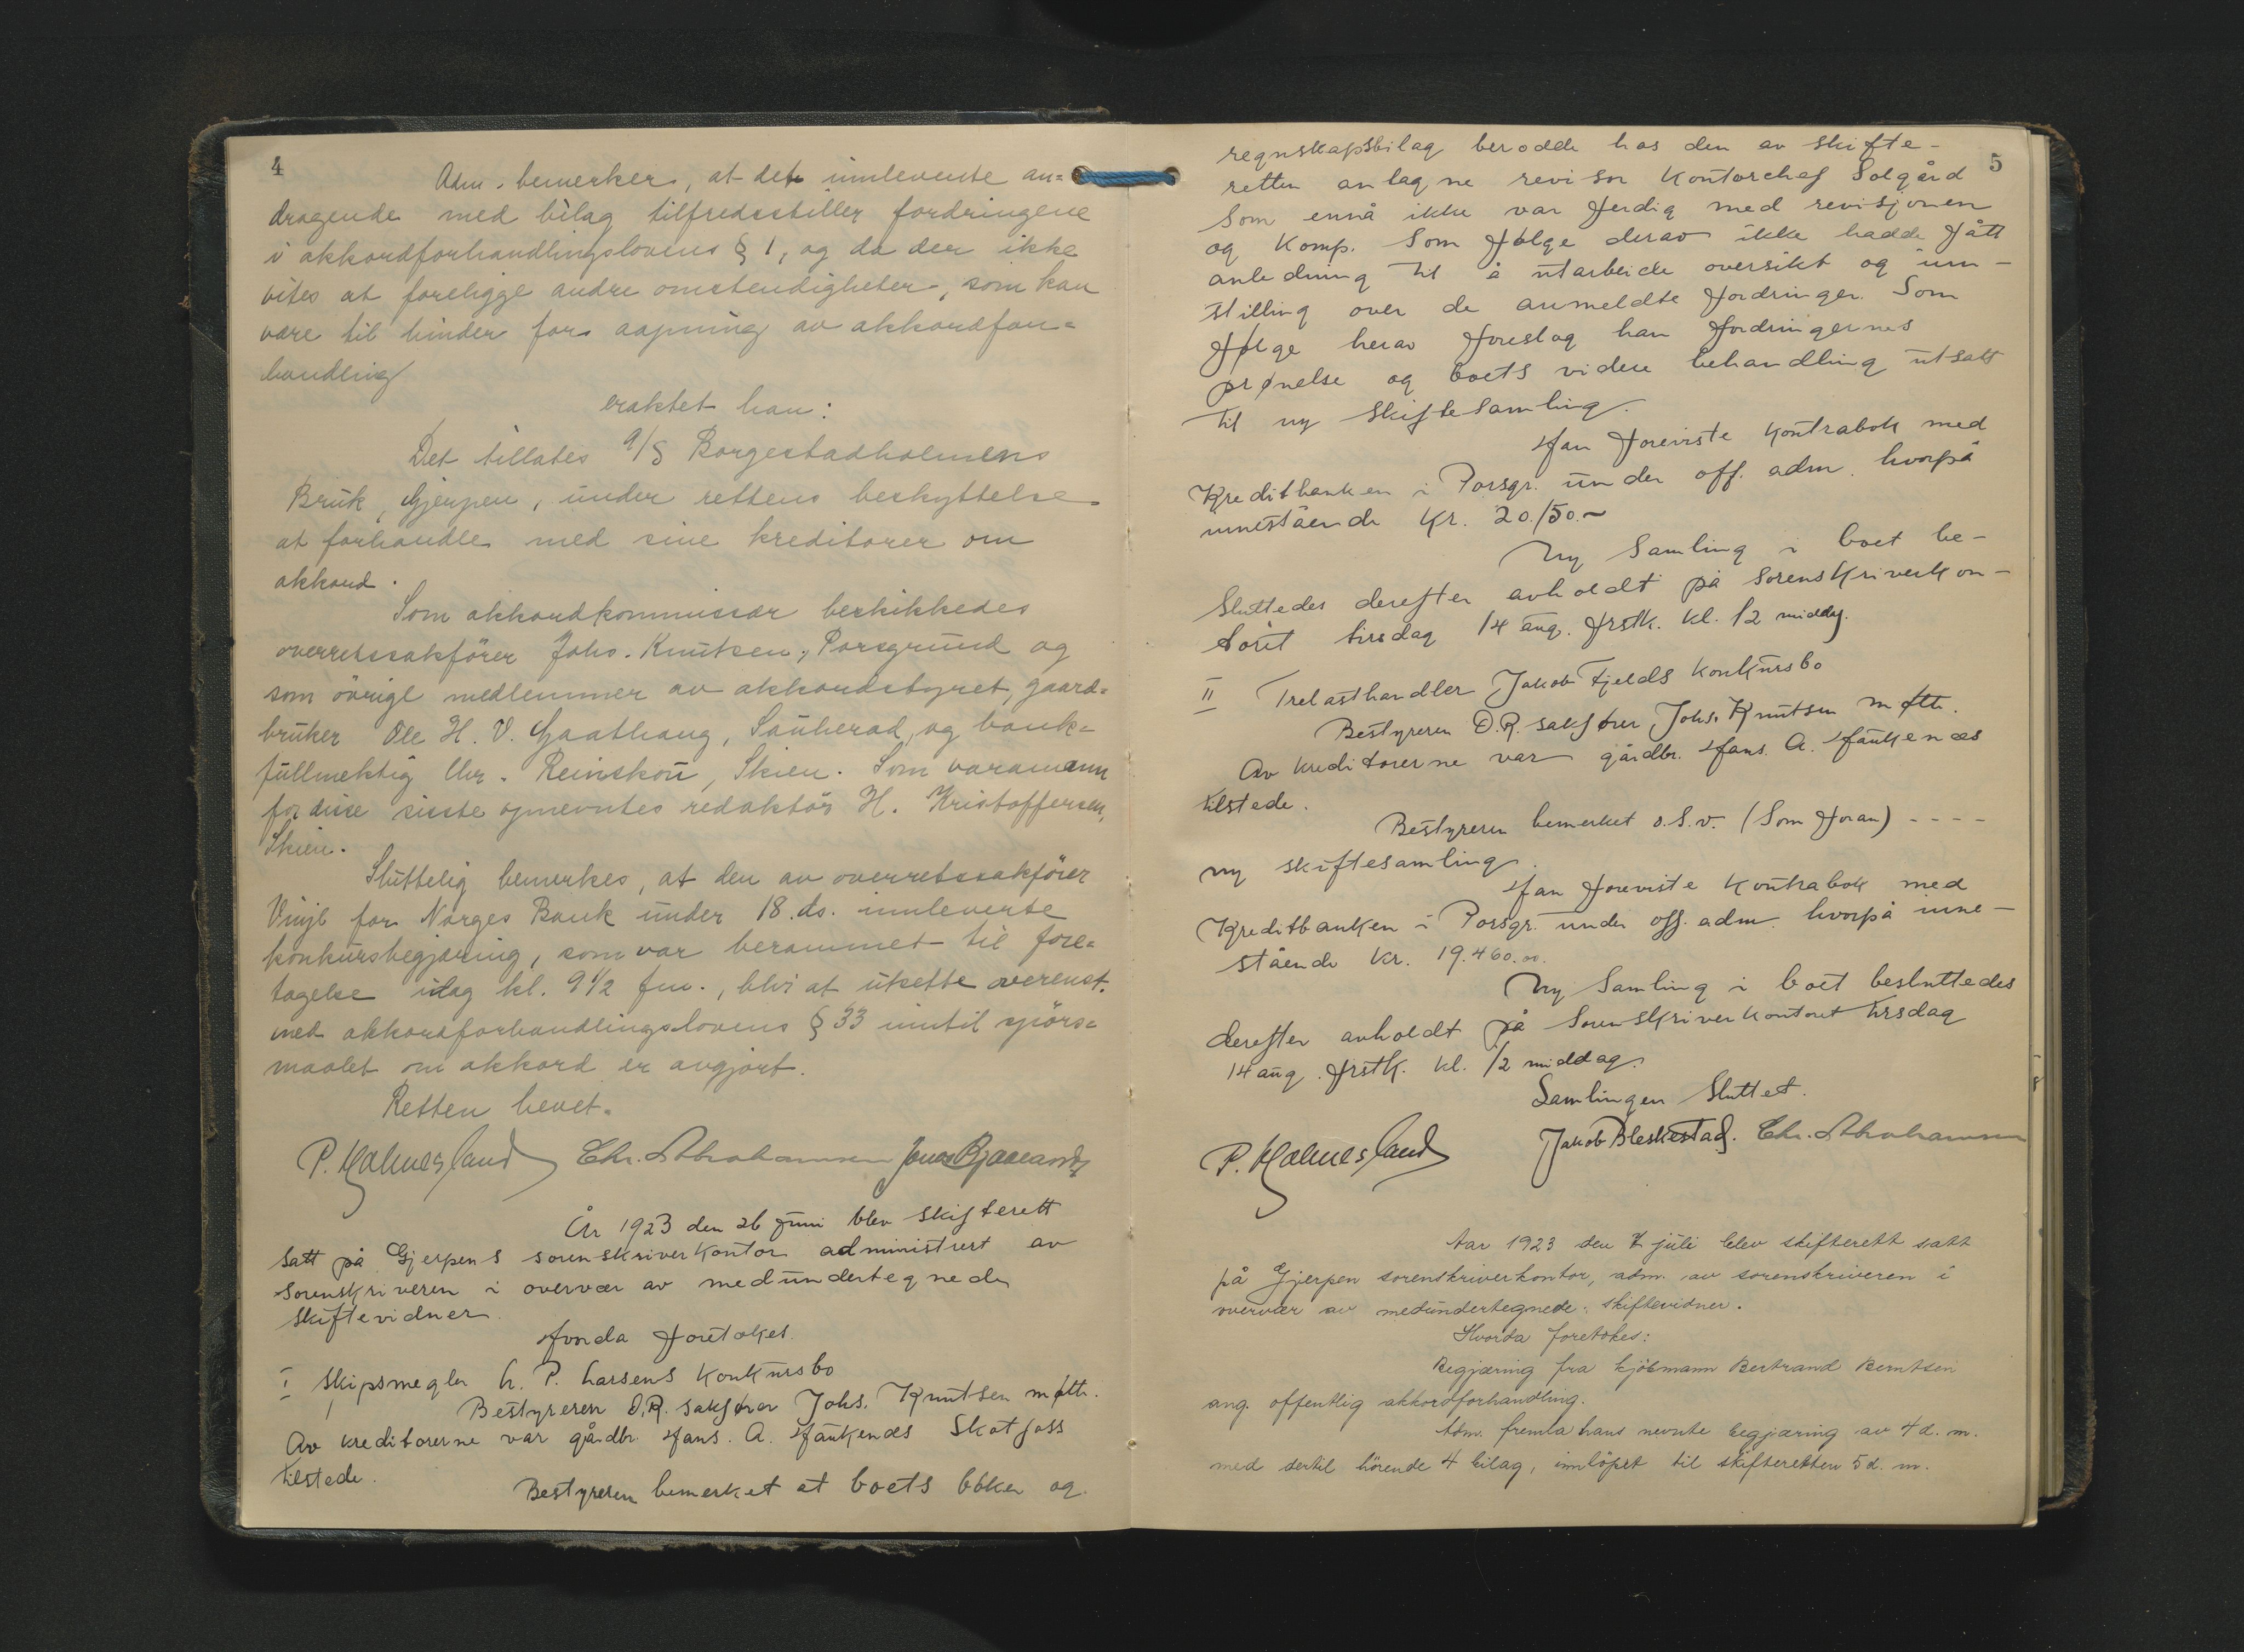 4
Adm. bemerker, at det innleverte an=
dragende med bilag tilfredsstiller fordringene
i akkordforhandlingslovens § 1, og da der ikke
vites at foreligge andre omstendigheter, som kan
være til hinder for aapning av akkordfor=
handling
eraktet han:
Det tillates A/S Borgestadholmens
Bruk, Gjerpen, under rettens beskyttelse
at forhandle med sine kreditorer om
akkord.
Som akkordkommissær beskikkedes
overretssakfører Johs. Knutsen, Porsgrund og
som övrige medlemmer av akkordstyret, gaard=
bruker Ole H. V. Gaathaug, Sauherad, og bank=
fullmektig Chr. Reinskou, Skien. Som varamann
for disse siste opnevntes redaktör H. Kristoffersen,
Skien.
Sluttelig bemerkes, at den av overretssakförer
for Norges Bank under 18. ds. innleverte
konkursbegjæring, som var berammet til fore=
tagelse idag kl. 9½ fm., blir at utsette overenst.
med akkordforhandlingslovens § 33 inntil spörs=
maalet om akkord er avgjort.
Retten hevet.
P. Holmesland Chr. Abrahamsen Jonas Bjaaland
År 1923 den 26 juni blev skifterett
satt på Gjerpens sorenskriverkontor administrert av
sorenskriveren i overvær av medundertegnede
skiftevidner.
Hvorda foretokes.
I Skipsmegler L. P. Larsens konkursbo
Bestyreren O.R. sakfører Johs. Knutsen møtte.
Av kreditorerne var gårdbr. Hans. A. Haukenæs Skotfoss
tilstede.
Bestyreren bemerket at boets bøker og
5
regnskapsbilag berodde hos den av skifte-
retten antagne revisor kontorchef Solgård
som ennå ikke var ferdig med revisjonen
og komp. som følge derav ikke hadde fått
anledning til å utarbeide oversikt og inn-
stilling over de anmeldte fordringer. Som
følge herav foreslog han fordringernes
prøvelse og boets videre behandling utsatt
til ny skiftesamling.
Han foreviste kontrabok med
Kreditbanken i Porsgr. under off. adm. hvorpå
innestående kr. 20.150.~
Ny samling i boet be-
sluttedes derefter avholdt på sorenskriverkon-
toret tirsdag 14 aug. førstk. kl. 12 middag.
II Trelasthandler Jakob Fjelds konkursbo
Bestyreren O.R. sakfører Johs. Knutsen møtte.
Av kreditorerne var gårdbr. Hans A. Haukenæs
tilstede.
Bestyreren bemerket o.s.v. (som foran) - - - -
ny skiftesamling.
Han foreviste kontrabok med
Kreditbanken i Porsgr. under off. adm. hvorpå inne-
stående kr. 19.460.00.
Ny samling i boet besluttedes
derefter avholdt på Sorenskriverkontoret tirsdag
14 aug. førstk. kl. 12 middag.
Samlingen sluttet.
P. Holmesland Jakob Bleskestad. Chr. Abrahamsen
Aar 1923 den 7 juli blev skifterett satt
på Gjerpen sorenskriverkontor, adm. av sorenskriveren i
overvær av medundertegnede skiftevidner.
Hvorda foretokes:
Begjæring fra kjöbmann Bertrand Berntsen
ang. offentlig akkordforhandling.
Adm. fremla hans nevnte begjæring av 4 d. m.
med dertil hörende 4 bilag, innløpet til skifteretten 5 d. m.